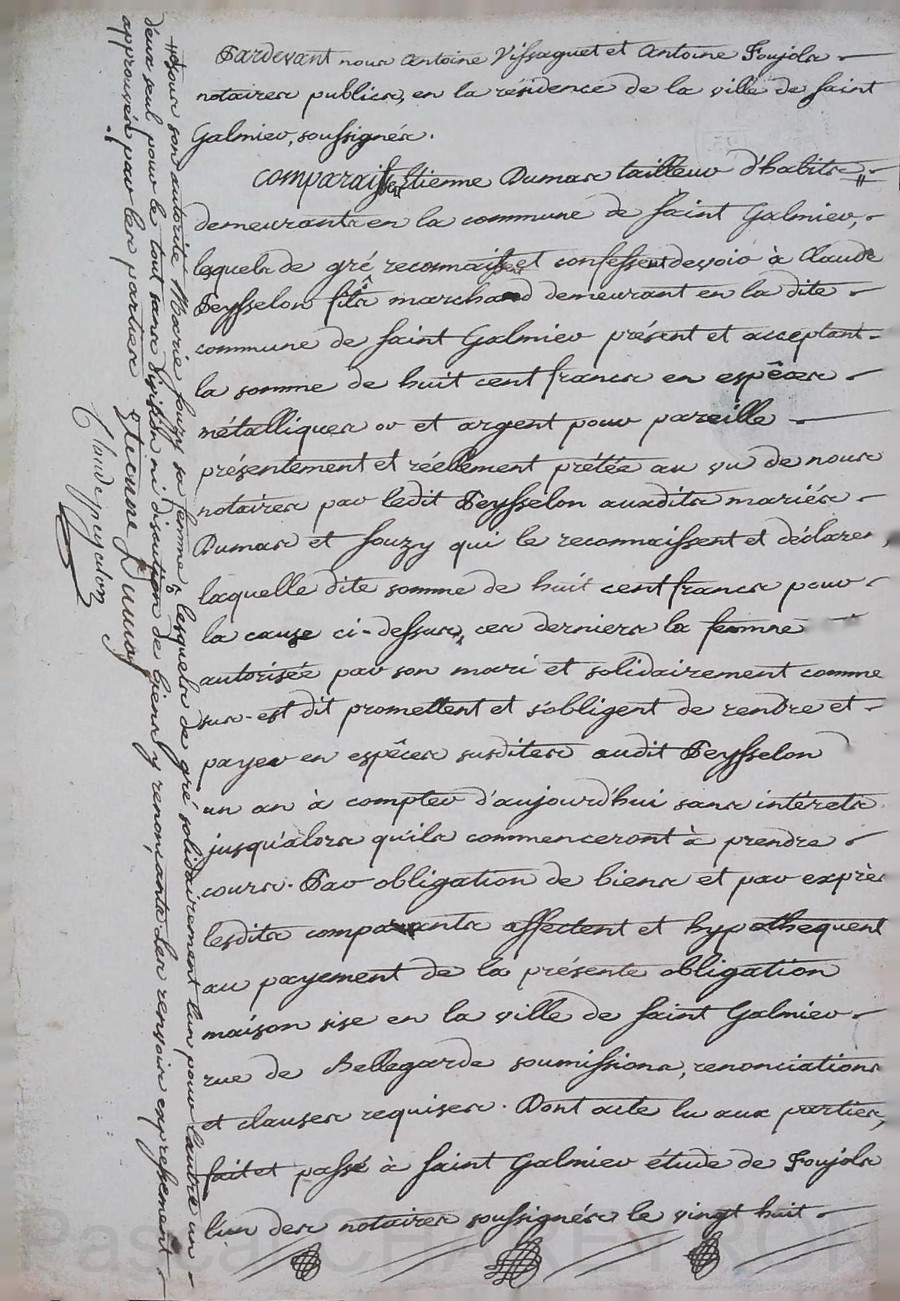 Pardevant nous Antoine Vissaguet et Antoine Foujols
notaires publics, en la résidence de la ville de Saint
Galmier, soussignés.
Comparaissent Etienne Dumas tailleur d'habits #
demeurants en la commune de Saint Galmier,
lesquels de gré reconnaissent et confessent devoir à Claude
Peysselon fils marchand demeurant en la dite
commune de Saint Galmier présent et acceptant
la somme de huit cent francs en espêces
métalliques or et argent pour pareille
présentement et réellement prétée au vu de nous
notaires par ledit Peysselon auxdits mariés
Dumas et Souzy qui le reconnaissent et déclarent,
laquelle dite somme de huit cent francs pour
la cause ci-dessus, ces derniers la femme
autorisée par son mari et solidairement comme
sus-est dit promettent et s'obligent de rendre et
payer en espêces susdites audit Peysselon
un an à compter d'aujourd'hui sans intérets
jusqu'alors qu'ils commenceront à prendre
cours. Par obligation de biens et par exprès
lesdits comparants affectent et hypothequent
au payement de la présente obligation
maison sise en la ville de Saint Galmier
rue de Bellegarde soumissions, renonciations
et clauses requises. Dont acte lu aux parties,
fait et passé à Saint Galmier étude de Foujols
l'un des notaires soussignés le vingt huit
# et sous son autorité Marie Souzy sa femme, lesquels de gré solidairement l'un pour l'autre un
d'eux seul pour le tout sans division ni discution de biens y renonçants les renvois expressement
approuvés par les parties
Etienne Dumas
Claude peyselon
Pascal CHAREYRON